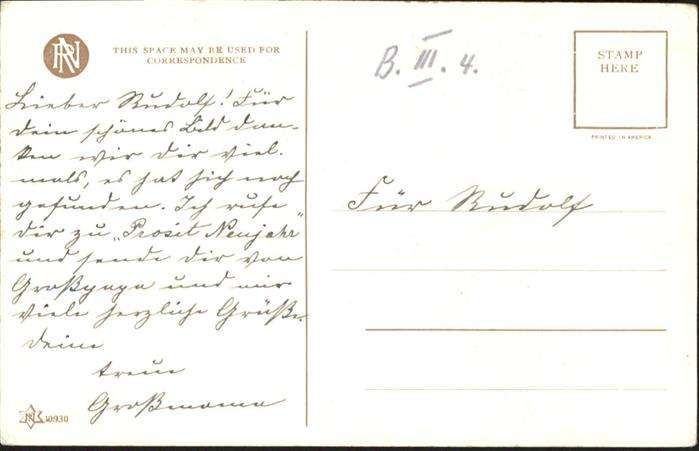 RN
THIS SPACE MAY BE USED FOR
CORRESPONDENCE
B. III. 4.
STAMP
HERE
PRINTED IN AMERICA
Lieber Rudolf! Für
dein schönes Bild dan-
ken wir Dir viel-
mals, es hat sich noch
gefunden. Ich rufe
Dir zu „Prosit Neujahr"
und sende Dir von
Großpapa und mir
viele herzliche Grüße.
Deine
treue
Großmama
Für Rudolf
10930